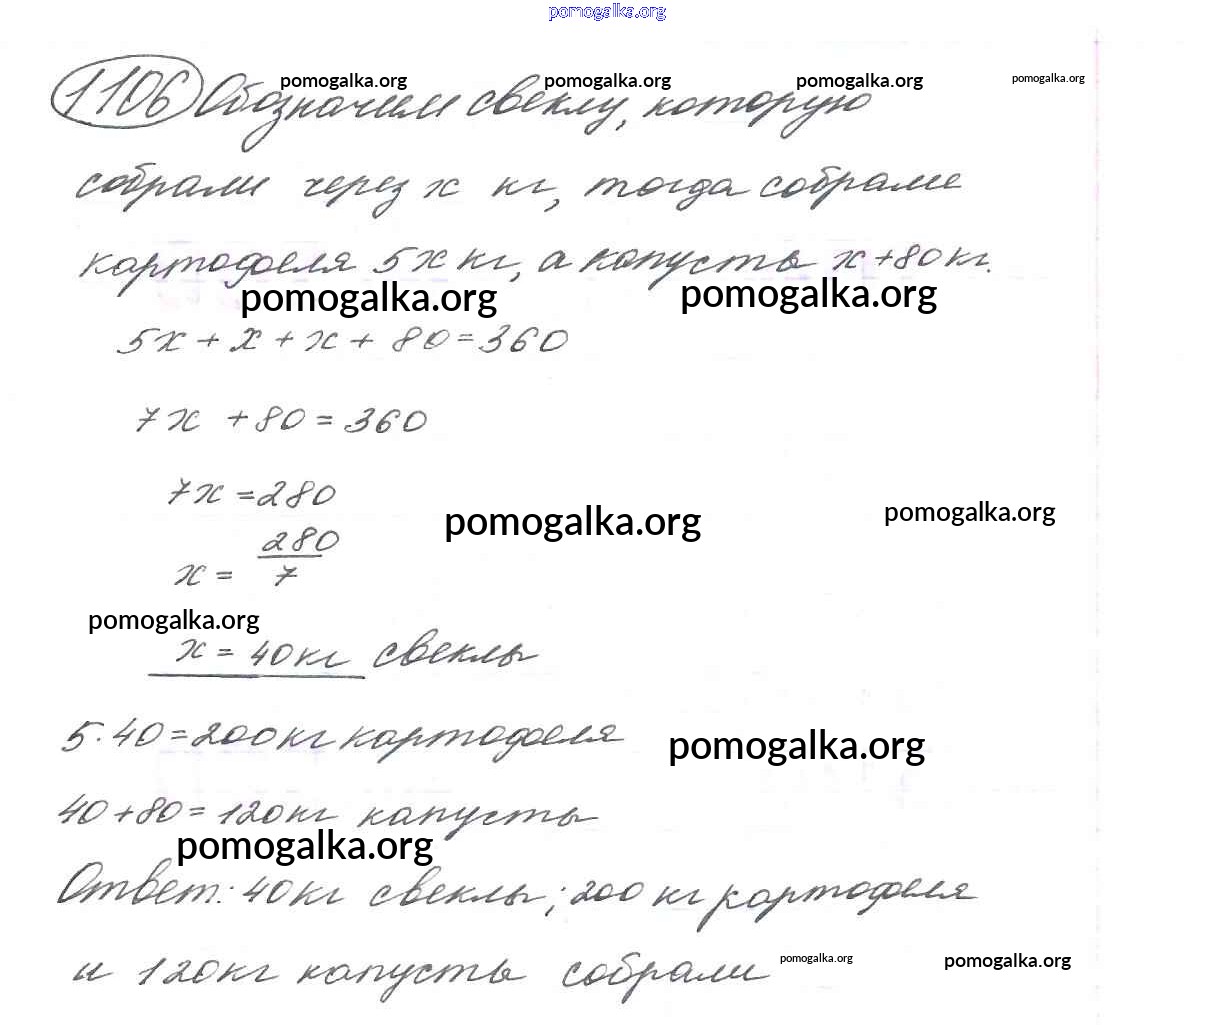 pomogalka.org
pomogalka.org pomogalka.org pomogalka.org pomogalka.org
1106 Обозначим свеклу, которую
собрали через x кг, тогда собрали
картофеля 5x кг, а капусты x+80 кг.
pomogalka.org pomogalka.org
5x + x + x + 80 = 360
7x + 80 = 360
7x = 280
pomogalka.org pomogalka.org
x = 280/7
pomogalka.org
x = 40 кг свеклы
5·40=200 кг картофеля
pomogalka.org
40+80=120 кг капусты
pomogalka.org
Ответ: 40 кг свеклы; 200 кг картофеля
и 120 кг капусты собрали
pomogalka.org pomogalka.org